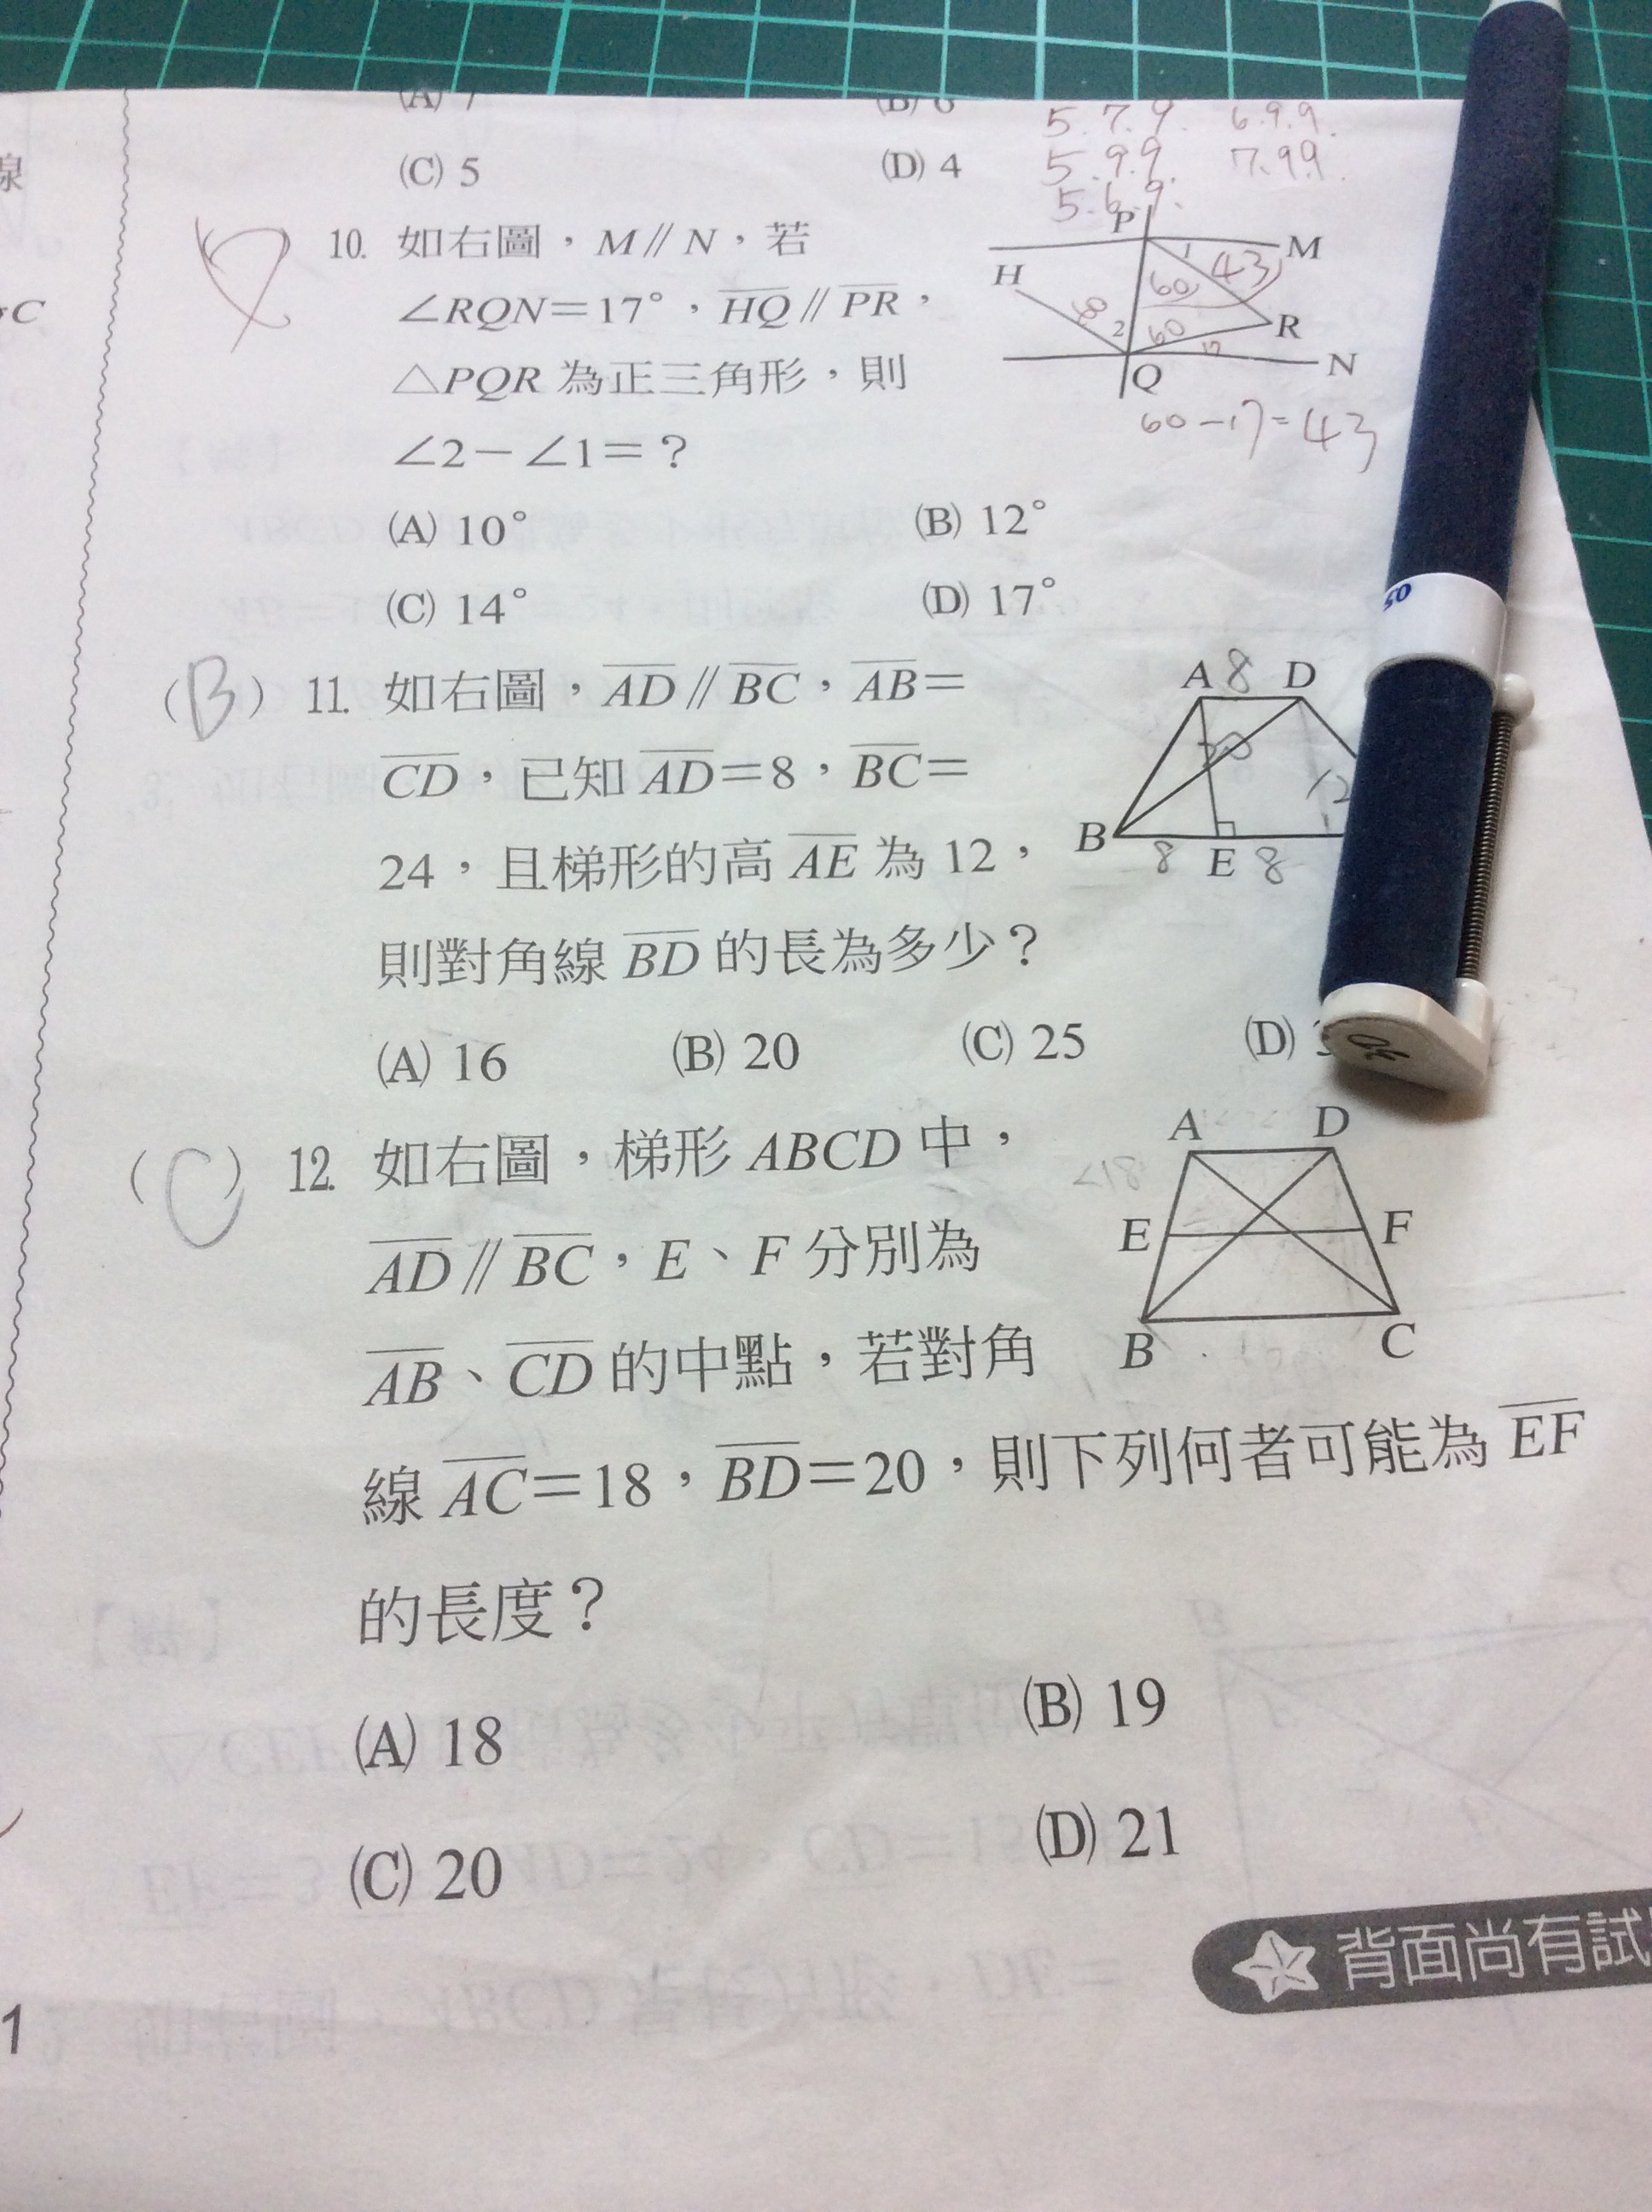 線
C
(C) 5
(D) 4
5.7.9. 6.9.9.
5.9.9. 7.9.9.
5.6.9.
10. 如右圖，M∥N，若
∠RQN＝17°，HQ∥PR，
△PQR 為正三角形，則
∠2－∠1＝？
P
1
43
M
H
60
60
R
2
60
17
N
Q
60－17＝43
(A) 10°
(B) 12°
(C) 14°
(D) 17°
(B) 11. 如右圖，AD∥BC，AB＝
CD，已知 AD＝8，BC＝
24，且梯形的高 AE 為 12，
則對角線 BD 的長為多少？
A 8 D
20
12
B
8 E 8
(A) 16
(B) 20
(C) 25
(D)
50
(C) 12. 如右圖，梯形 ABCD 中，
AD∥BC，E、F 分別為
AB、CD 的中點，若對角
線 AC＝18，BD＝20，則下列何者可能為 EF
的長度？
A D
<18
E F
B C
(A) 18
(B) 19
(C) 20
(D) 21
背面尚有試
1